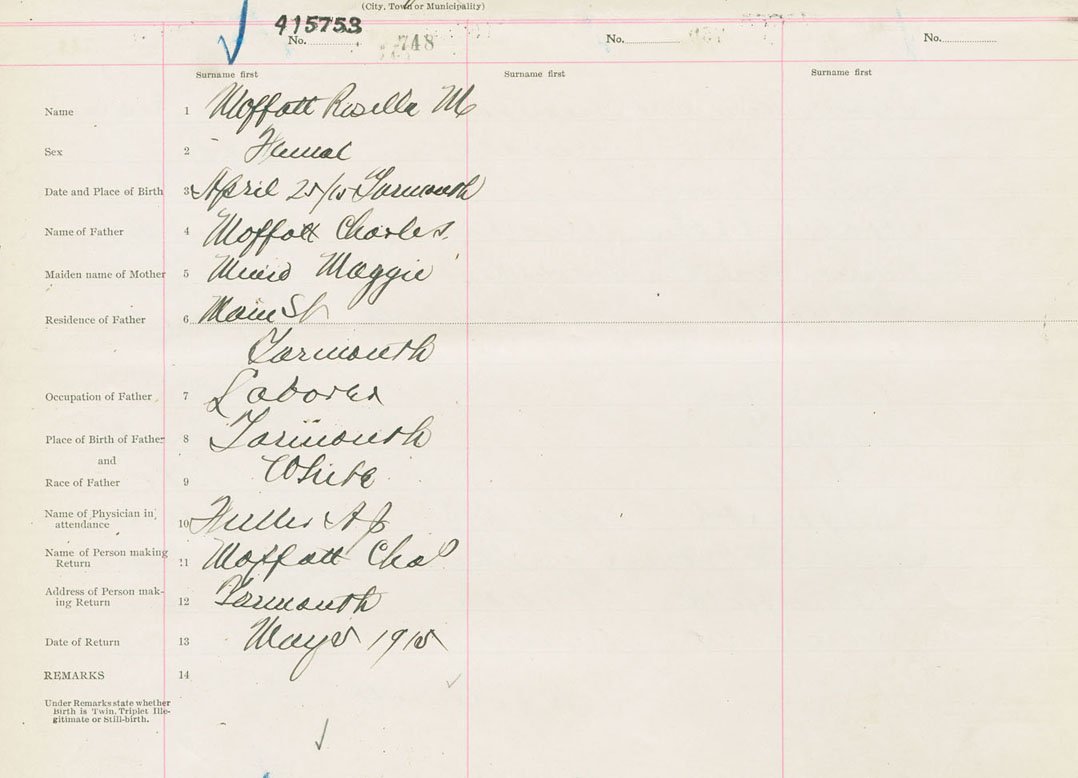 (City, Town or Municipality)
415753
No. 748 No. No.
Surname first Surname first Surname first
Name 1 Moffatt Rosella M
Sex 2 Femal
Date and Place of Birth 3 April 25/15 Yarmouth
Name of Father 4 Moffatt Charles.
Maiden name of Mother 5 Maggie
Residence of Father 6 Main St
Yarmouth
Occupation of Father 7 Laborer
Place of Birth of Father 8 Yarmouth
and
Race of Father 9 White
Name of Physician in
attendance 10 Fuller A J
Name of Person making
Return 11 Moffatt Chas
Address of Person mak-
ing Return 12 Yarmouth
Date of Return 13 May 5 1915
REMARKS 14
Under Remarks state whether
Birth is Twin, Triplet Ille-
gitimate or Still-birth.